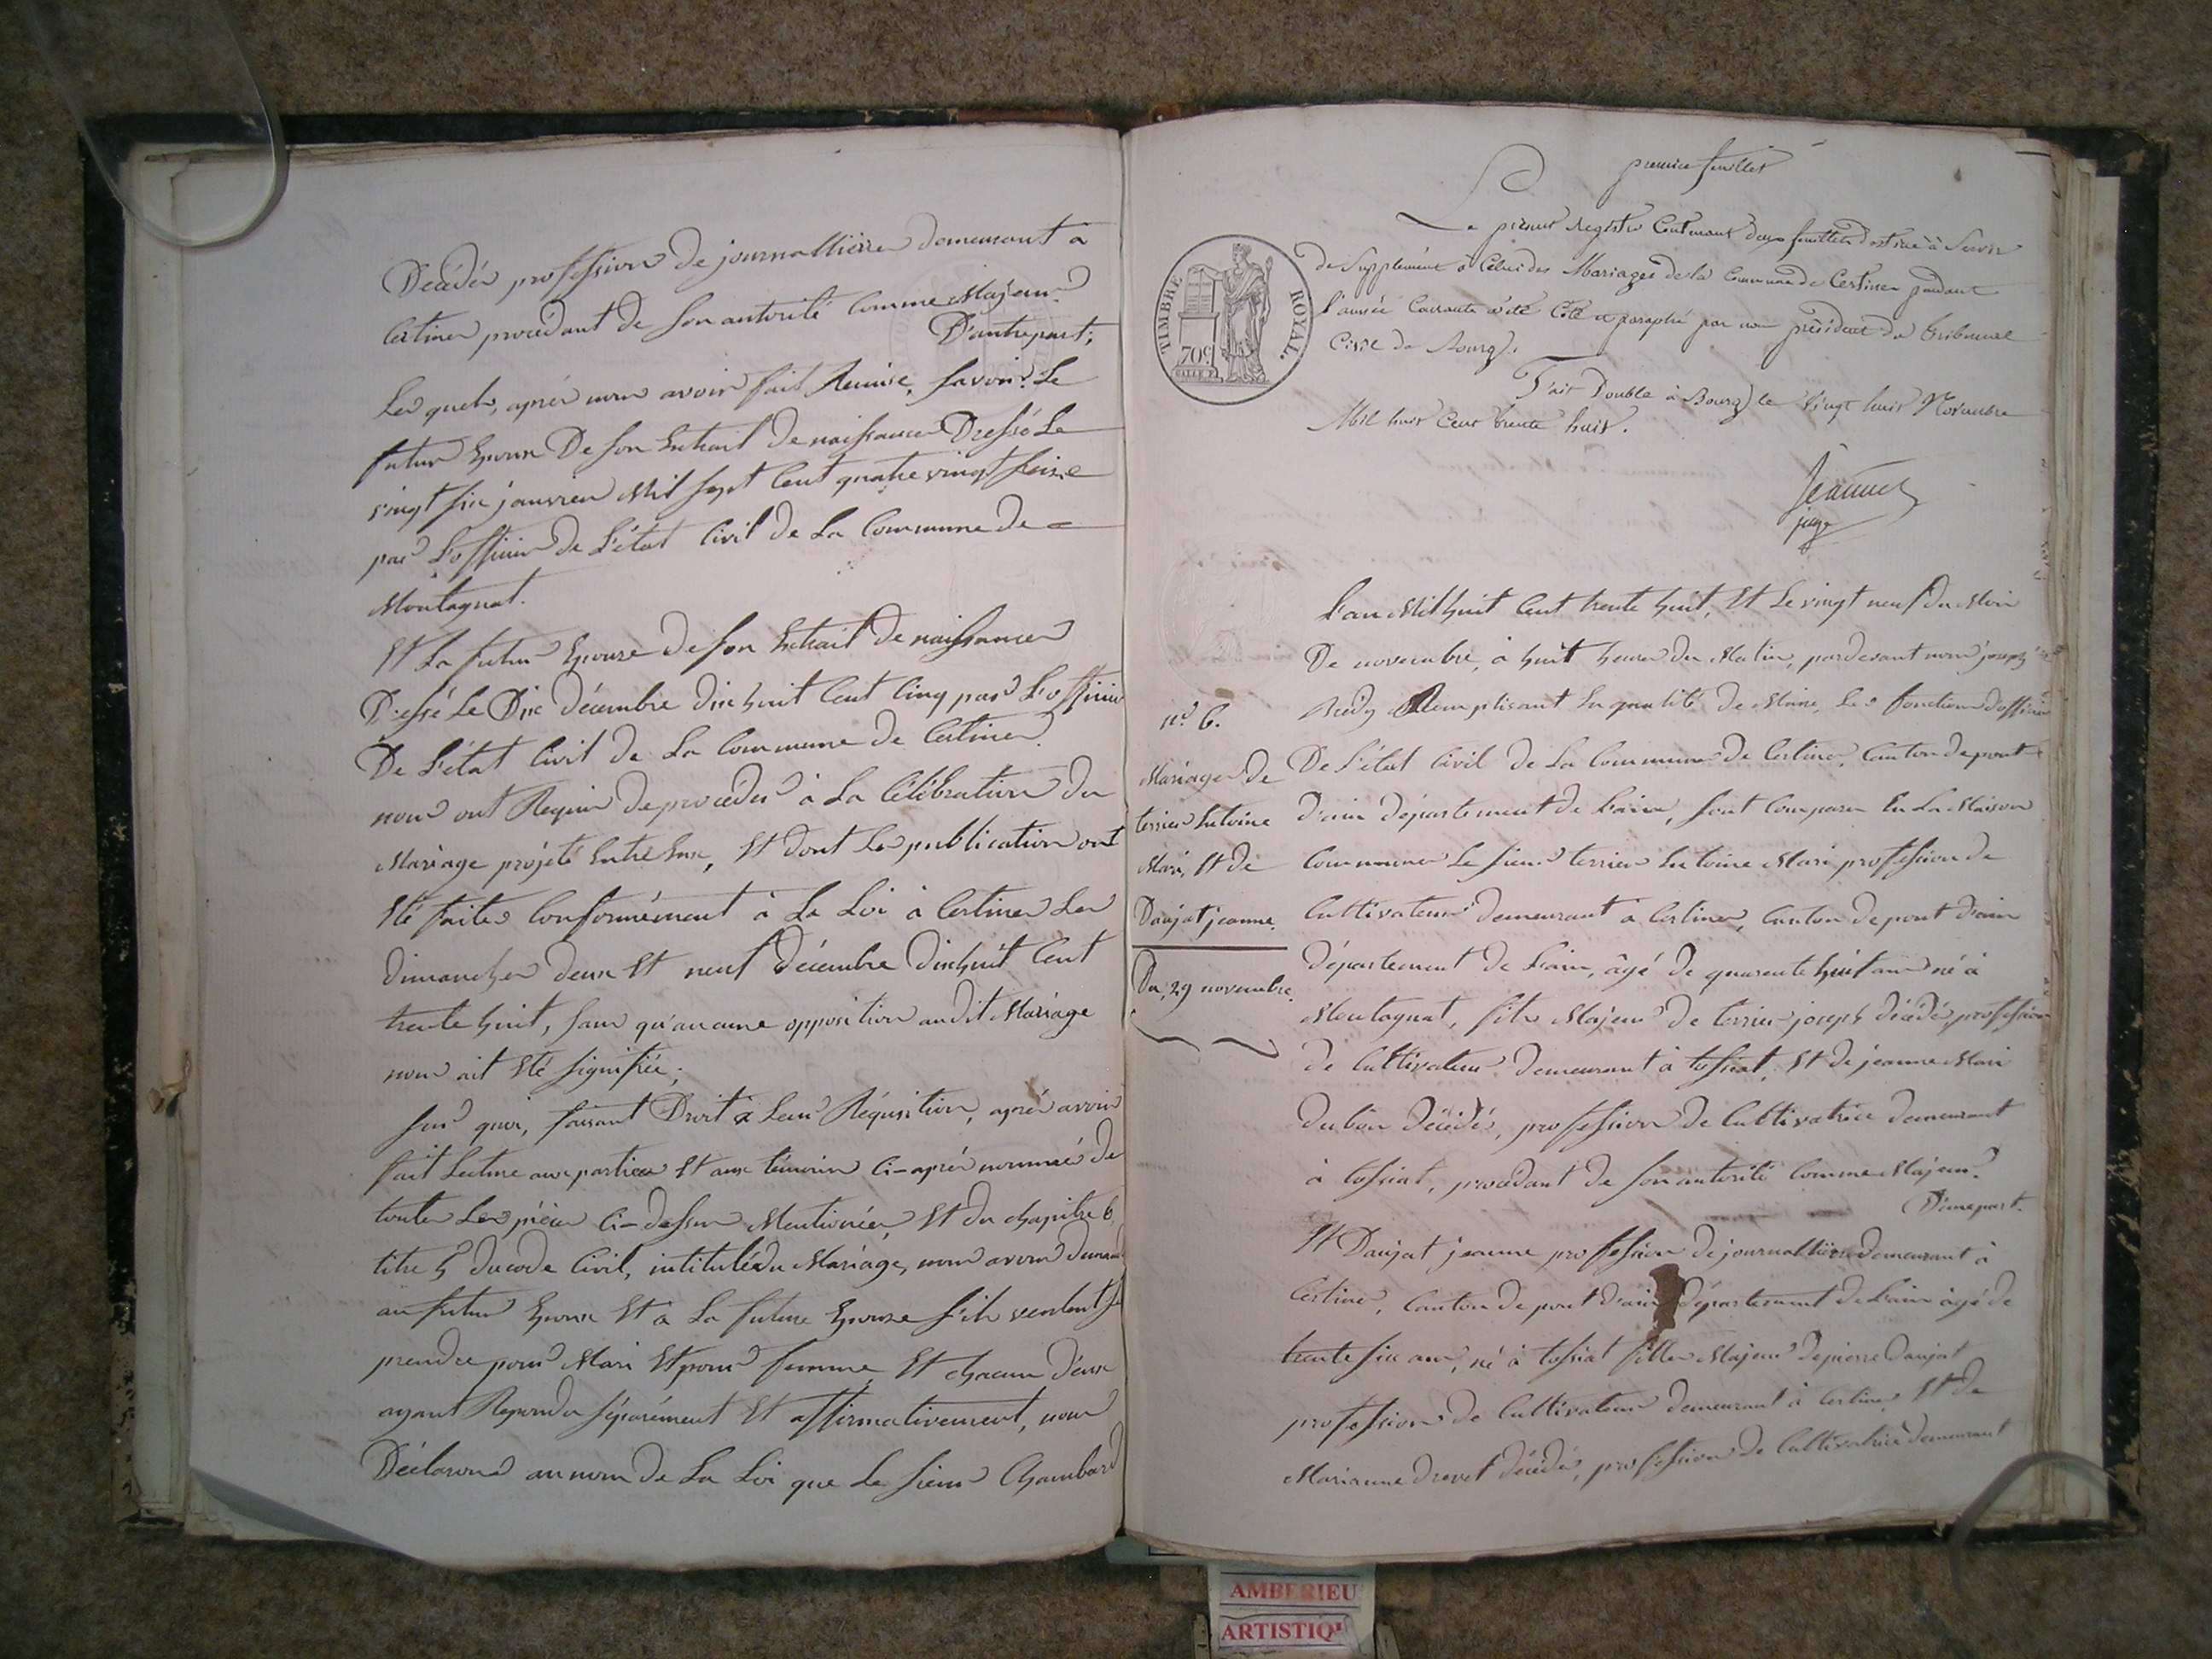 Décédés profession de journallière demeurant à
Certines procédant de son autorité comme Majeur.
D'autre part;
Les quels, après nous avoir fait Remise, savoir: Le
futur Epoux De son Extrait de naissance Dressé Le
vingt six janvier Mil sept Cent quatre vingt seize
par L'officier de L'état Civil de La Commune De
Montagnat.
Et La futur Epouse de son Extrait de naissance
Dressé Le Dix décembre dix huit Cent Cinq par L'officier
De L'état Civil de La Commune de Certines.
nous ont Requis de procéder à La Célébration du
Mariage projeté Entre Eux, Et dont Les publication ont
Eté faites Conformément à La Loi à Certines Les
dimanches deux Et neuf décembre dix huit Cent
trente huit, sans qu'aucune opposition audit Mariage
nous ait Eté signifiée;
sur quoi, faisant Droit à Leur Réquisition, après avoir
fait Lecture aux parties Et aux témoins Ci-après nommés de
toutes Les pièces Ci-dessus Mentionées, Et du chapitre 6
titre 5 du code Civil, intitulé du Mariage, nous avons demandé
au futur Epoux Et à La future Epouse s'ils veulent se
prendre pour Mari Et pour femme, Et chacun d'eux
ayant Repondu séparément Et affirmativement, nous
Déclarons au nom de La Loi que Le sieur Chambard
premier feuillet
Le présent Registre Contenant deux feuillets destiné à Servir
de Supplément à Celui des Mariages de la Commune de Certines pendant
l'année Courante a été Coté et paraphé par nous président du Tribunal
Civil de Bourg.
Fait Double à Bourg le Vingt huit Novembre
Mil huit Cent trente huit.
TIMBRE ROYAL.
70c.
juge
L'an Mil huit Cent trente huit, Et Le vingt neuf du Mois
De novembre, à huit heures du Matin, pardevant nous joseph
Remplissant En qualité de Maire, Les fonctions d'officier
De L'état Civil de La Commune de Certines, Canton de pont
d'ain département de L'ain, sont Comparu En La Maison
Commune Le sieur terrier Antoine Mari profession de
Cultivateur demeurant à Certines, Canton de pont d'ain
département de L'ain, âgé de quarente huit ans né à
Montagnat, fils Majeur de terrier joseph décédé, profession
de Cultivateur demeurant à tossiat, Et de jeanne Mari
décédés, profession de Cultivatrice demeurant
à tossiat, procédant de son autorité Comme Majeur.
D'une part.
Et Daujat jeanne profession de journallière demeurant à
Certines, Canton de pont d'ain département de L'ain âgé de
trente six ans, né à tossiat fille Majeur de pierre Daujat
profession de Cultivateur demeurant à Certines Et de
Marianne drevet décédés, profession de Cultivatrice demeurant
n.° 6.
Mariage de
terrier Antoine
Mari, Et de
Daujat jeanne.
Du, 29 novembre.
AMBERIEU
ARTISTIQU